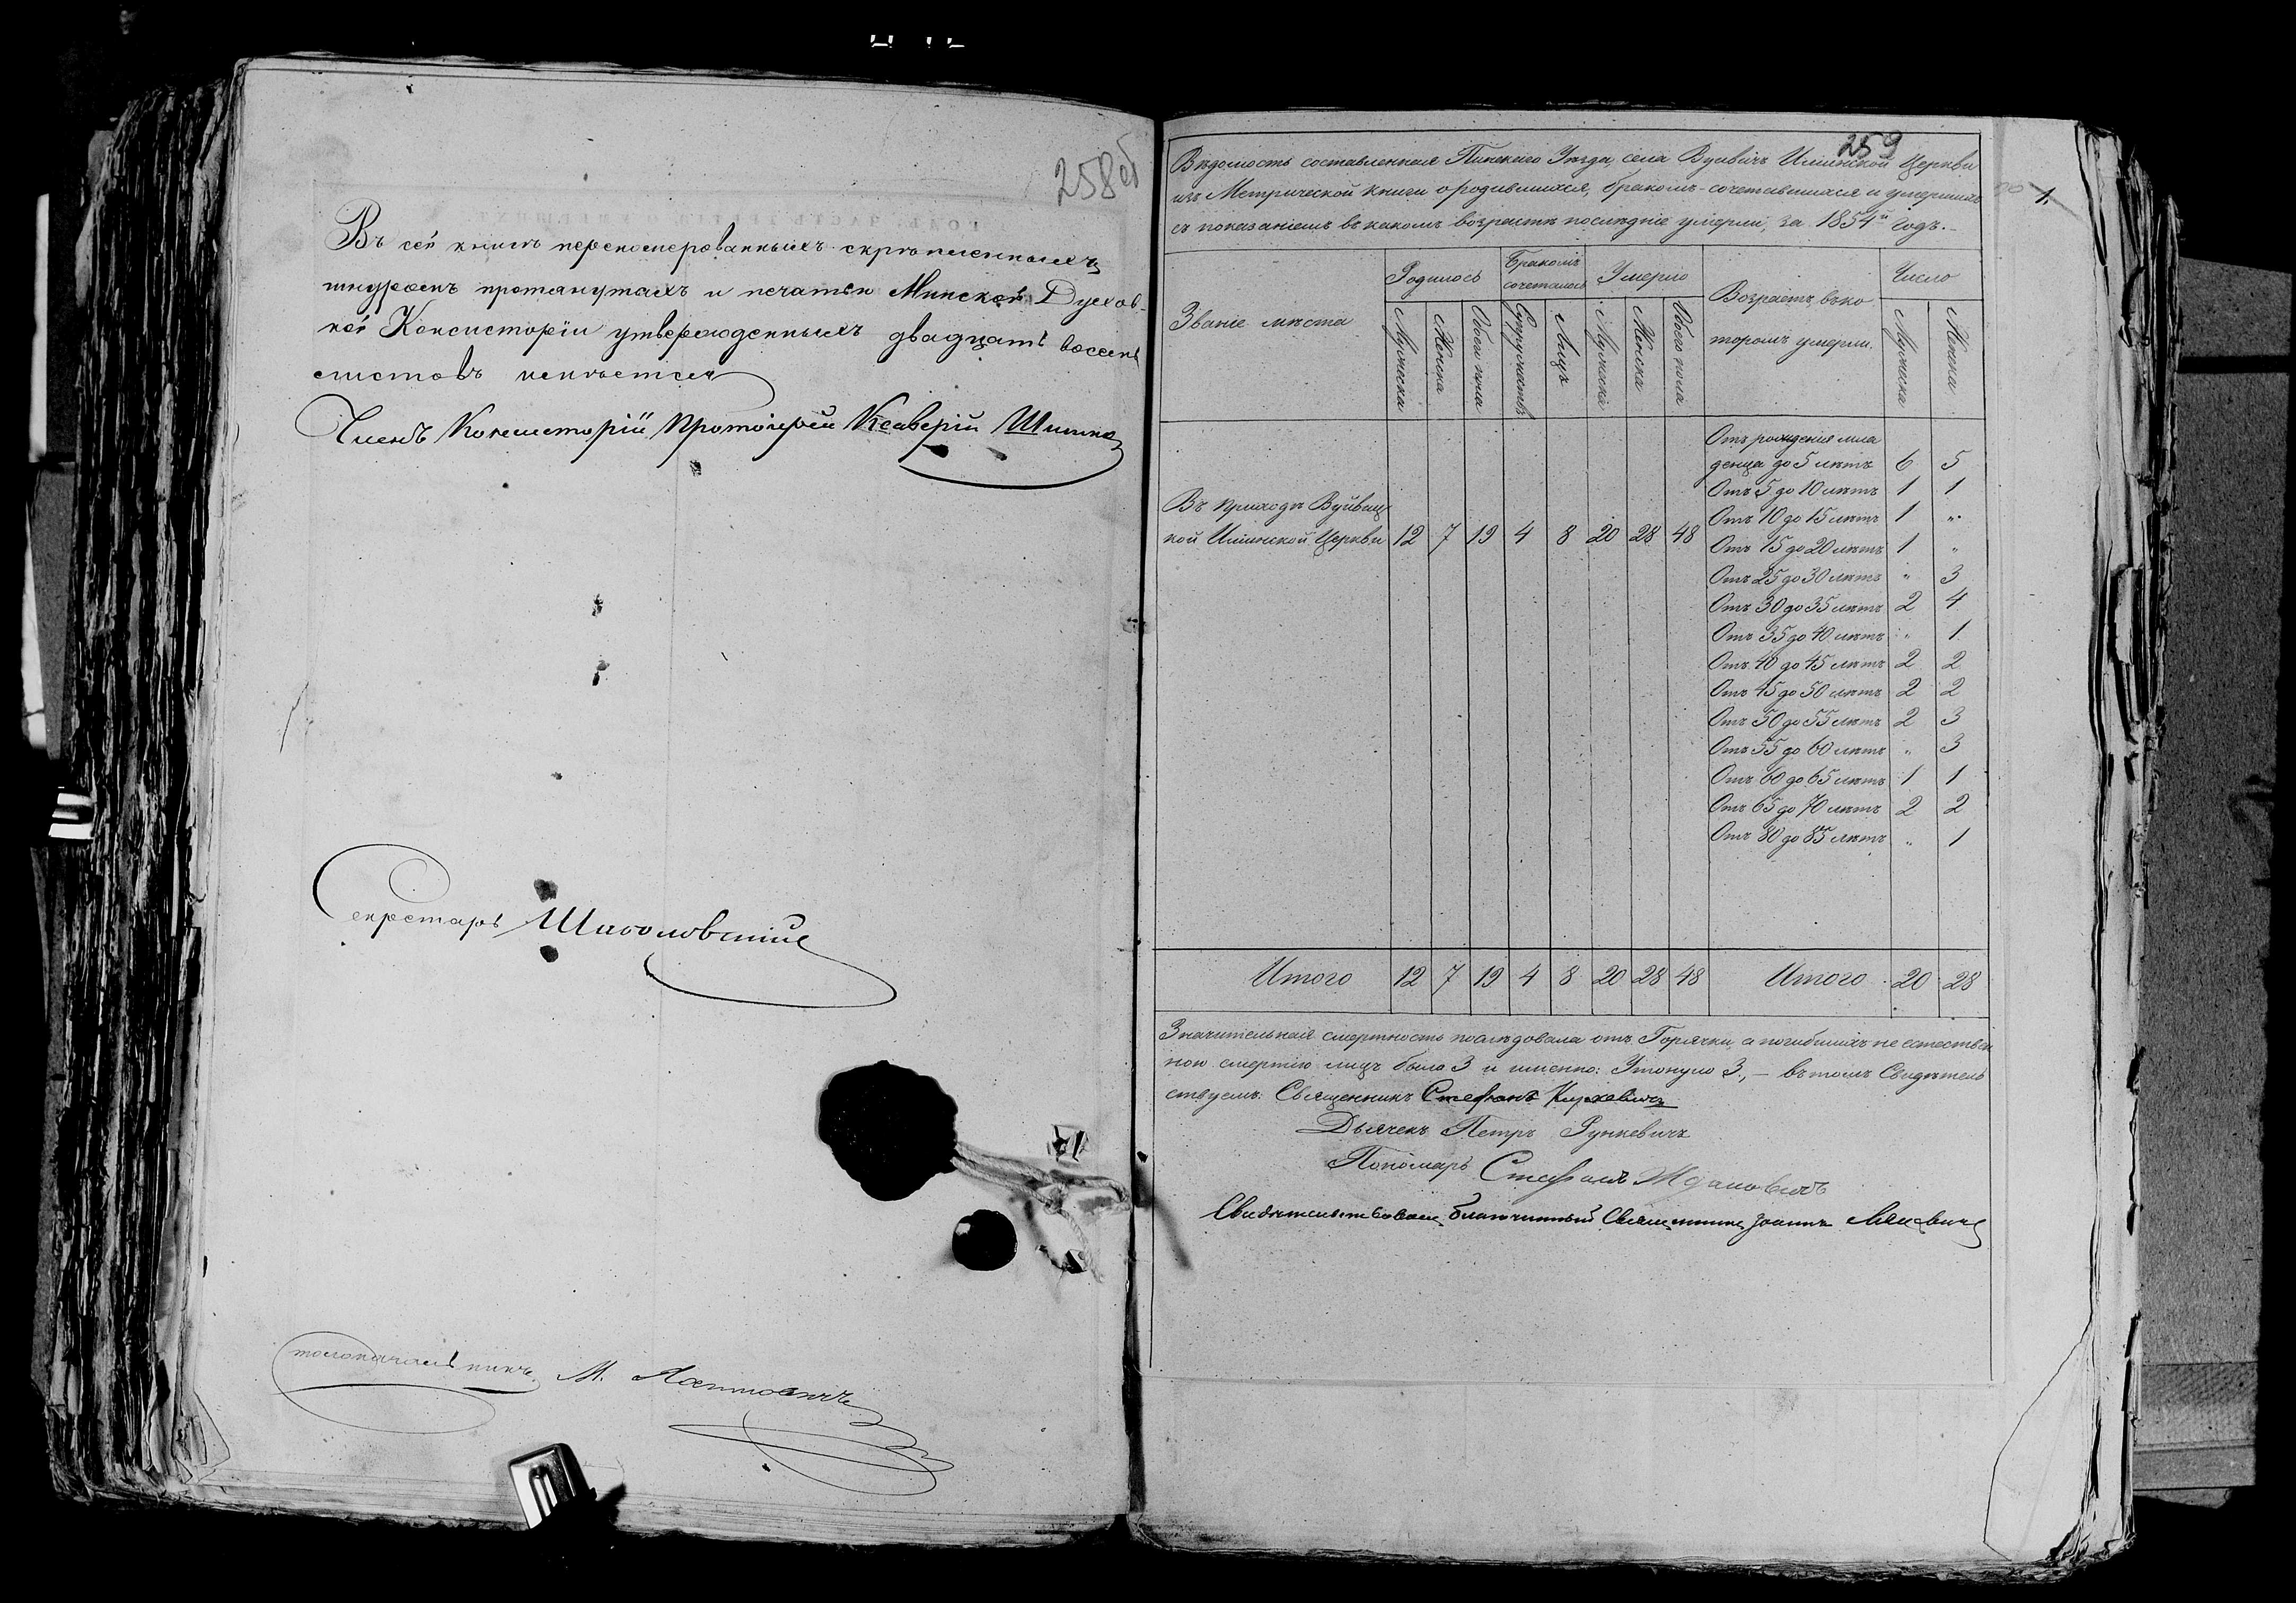 258об
Въ сей книгѣ перенумерованныхъ скрѣпленныхъ
шнуромъ протянутыхъ и печатью Минской Духов-
ной Консисторіи утвержденныхъ двадцать восемь
листовъ имѣется
Членъ Консисторіи Протоіерей Ксаверій
Секретарь
Столоначальникъ М.
259
1.
Вѣдомость составленная Пинскаго Уѣзда, села Вуивичъ Ильинской Церкви
изъ Метрической книги о родившихся, бракомъ-сочетавшихся и умершихъ
съ показаніемъ въ какомъ возрастѣ послѣдніе умерли, за 1854й годъ.
Званіе мѣста Родилось Бракомъ сочеталось Умерло Возрастъ, въ ко- Число
торомъ умерли.
Мужеска Женска Обоего пола Супружествъ Лицъ Мужеска Женска Обоего пола Мужеска Женска
Отъ рожденія мла
денца до 5 лѣтъ 6 5
Отъ 5 до 10 лѣтъ 1 1
Въ приходѣ Вуйвиц
Отъ 10 до 15 лѣтъ 1 "
кой Ильинской Церкви 12 7 19 4 8 20 28 48
Отъ 15 до 20 лѣтъ 1 "
Отъ 25 до 30 лѣтъ " 3
Отъ 30 до 35 лѣтъ 2 4
Отъ 35 до 40 лѣтъ " 1
Отъ 40 до 45 лѣтъ 2 2
Отъ 45 до 50 лѣтъ 2 2
Отъ 50 до 55 лѣтъ 2 3
Отъ 55 до 60 лѣтъ " 3
Отъ 60 до 65 лѣтъ 1 1
Отъ 65 до 70 лѣтъ 2 2
Отъ 80 до 85 лѣтъ " 1
Итого 12 7 19 4 8 20 28 48 Итого 20 28
Значительная смертность послѣдовала отъ Горячки, а погибшихъ не естествен
ною смертію лицъ было 3 и именно: Утонуло 3., — въ томъ Свидѣтель
ствуемъ: Священникъ Стефанъ
Дьячекъ Петръ Рункевичъ
Пономарь Стефанъ Ждановичъ
Свидѣтельствовалъ Благочинный Священникъ Іоаннъ